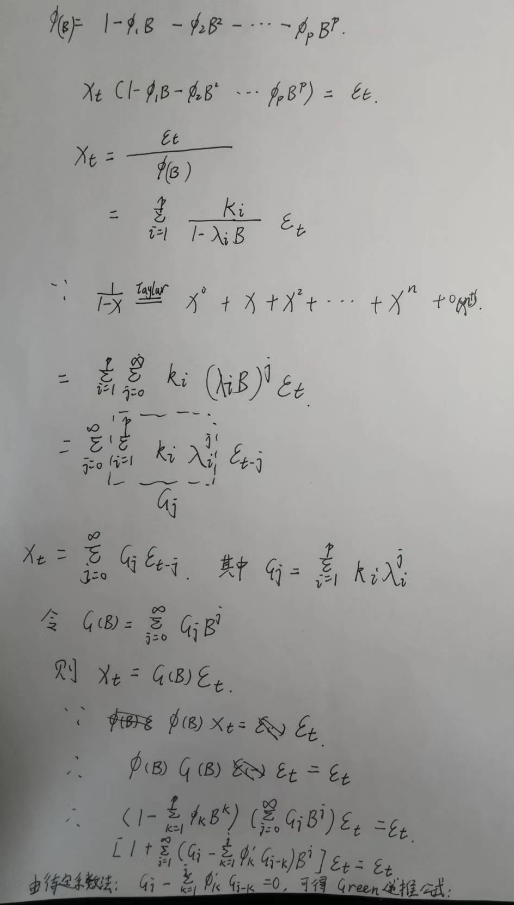 ϕ(B)= 1-ϕ₁B -ϕ₂B² -⋯-ϕₚBᵖ.
Xt (1-ϕ₁B-ϕ₂B² ⋯ ϕₚBᵖ) = εt.
Xt = εt / ϕ(B)
= Σ_{i=1}^{p} ki / (1-λiB) εt
∵ 1/(1-X) Taylor X⁰ + X + X² + ⋯ + Xⁿ +
= Σ_{i=1}^{p} Σ_{j=0}^{∞} ki (λiB)^j εt.
= Σ_{j=0}^{∞} Σ_{i=1}^{p} ki λi^j εt-j
Gj
Xt = Σ_{j=0}^{∞} Gj εt-j. 其中 Gj = Σ_{i=1}^{p} ki λi^j
令 G(B) = Σ_{j=0}^{∞} Gj B^j
则 Xt = G(B) εt.
∵ ϕ(B) Xt = εt.
∴ ϕ(B) G(B) εt = εt
∴ (1-Σ_{k=1}^{p} ϕk B^k) (Σ_{j=0}^{∞} Gj B^j) εt = εt.
[1 + Σ_{j=1}^{∞} (Gj - Σ_{k=1}^{j} ϕ'k Gj-k) B^j] εt = εt
由待定系数法: Gj - Σ_{k=1}^{j} ϕ'k Gj-k = 0, 可得 Green递推公式: